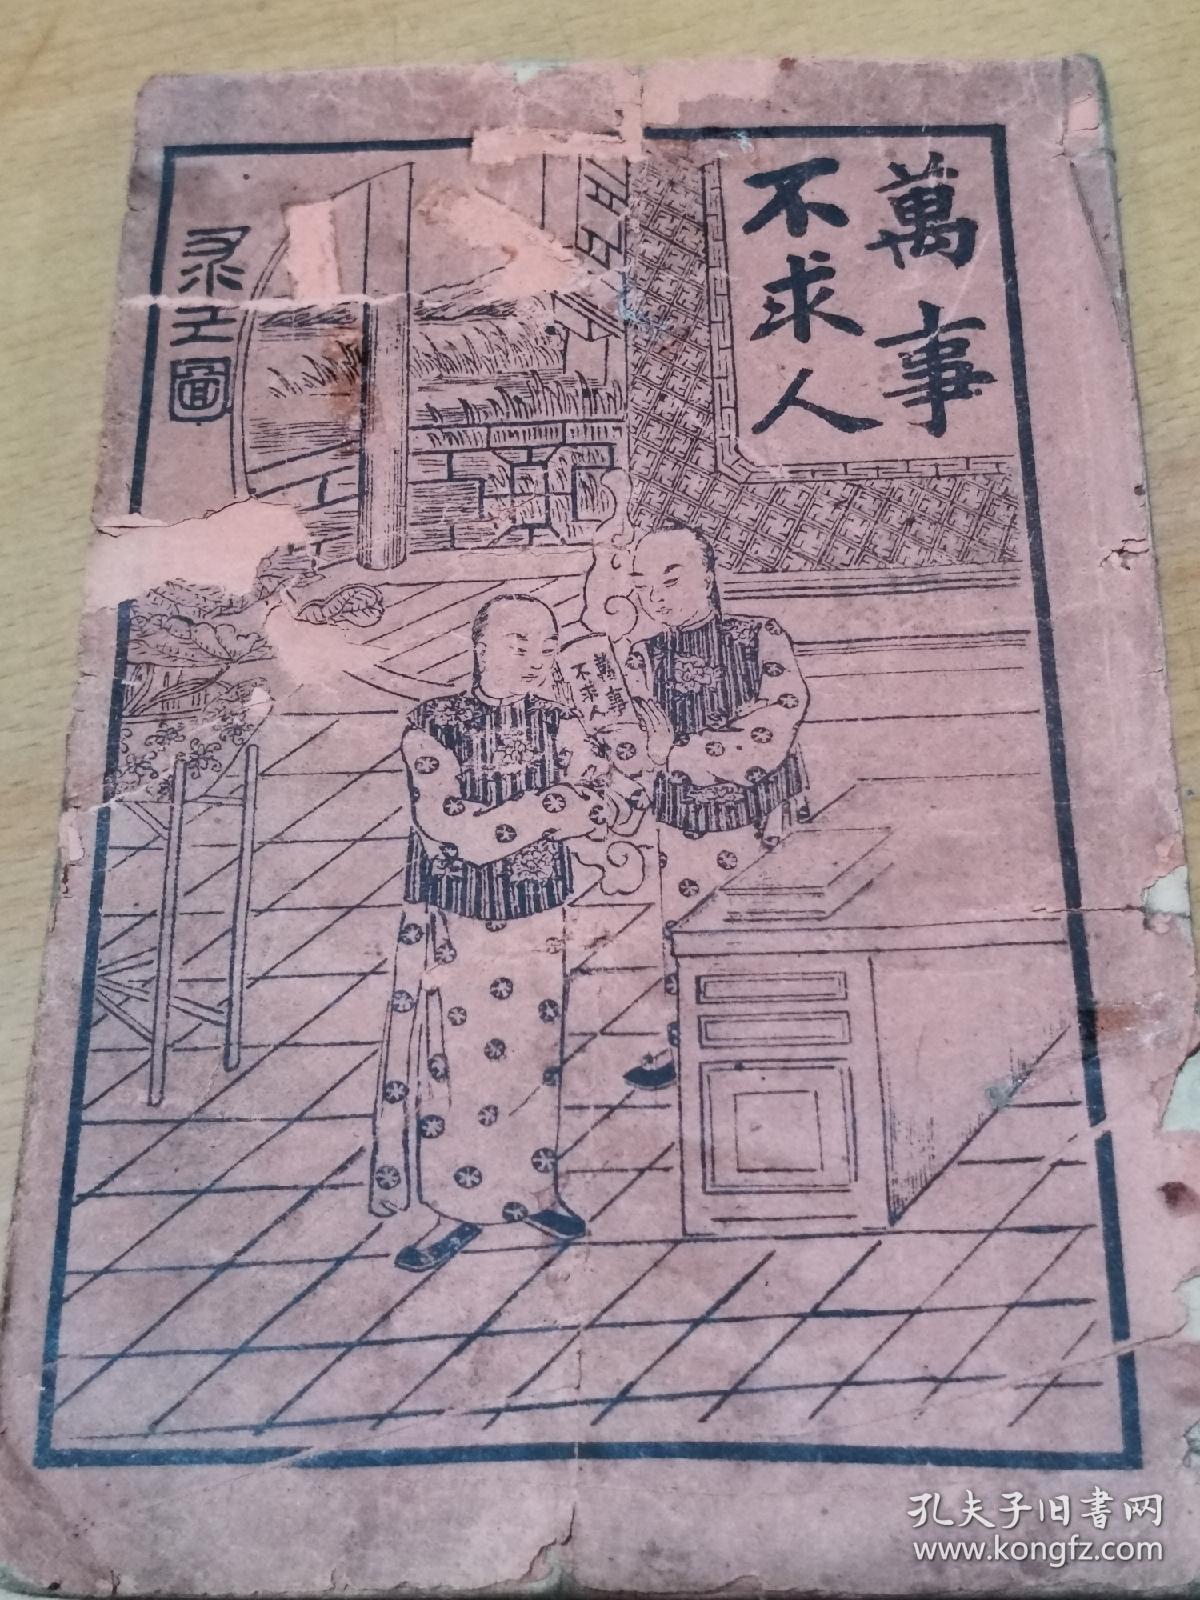 萬事
不求人
萬事
不求人
孔夫子旧書网
www.kongfz.com